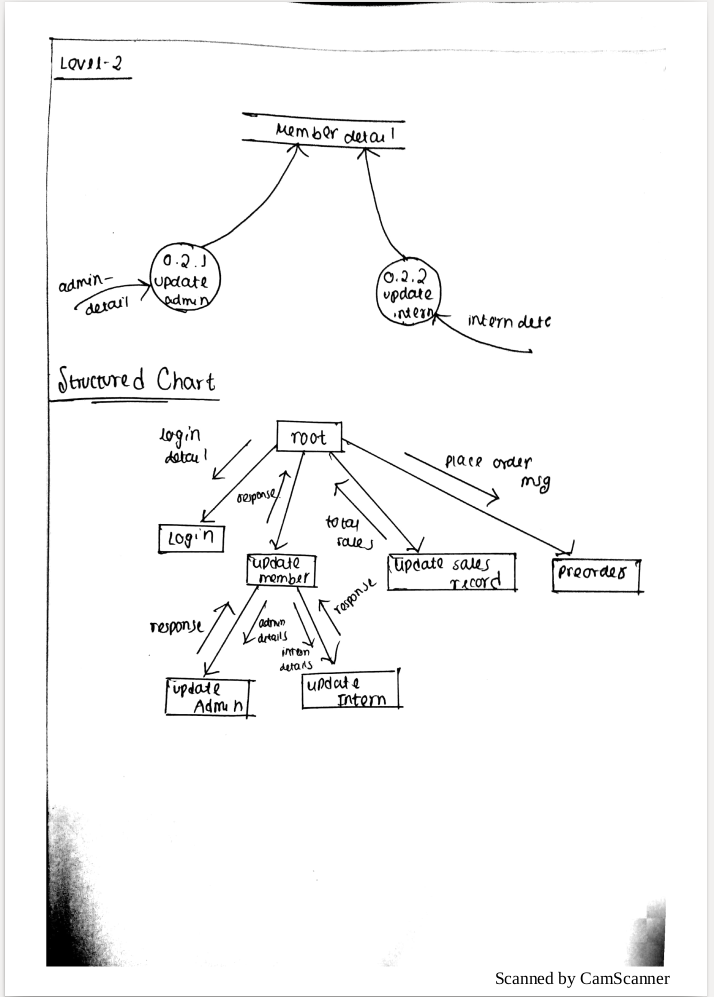 Level-2
Member detail
0.2.1
update
admin
admin-
detail
0.2.2
update
intern
intern dete
Structured Chart
root
login
detail
response
total
sales
place order
msg
Login
update
member
update sales
record
preorder
response
admin
details
intern
details
response
update
Admin
update
Intern
Scanned by CamScanner